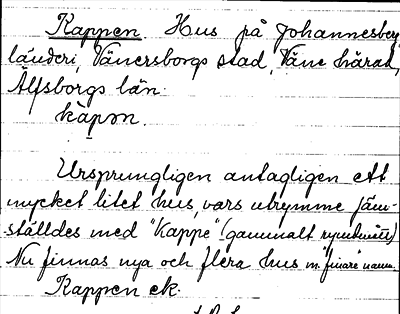 Kappen. Hus på Johannesberg
länderi, Vänersborgs stad, Väne härad,
Älfsborgs län.
kàpәn.
Ursprungligen antagligen ett
mycket litet hus, vars utrymme jäm-
ställdes med "Kappe" (gammalt rymdmått)
Nu finnas nya och flera hus m. "finare" namn.
Kappen ek.